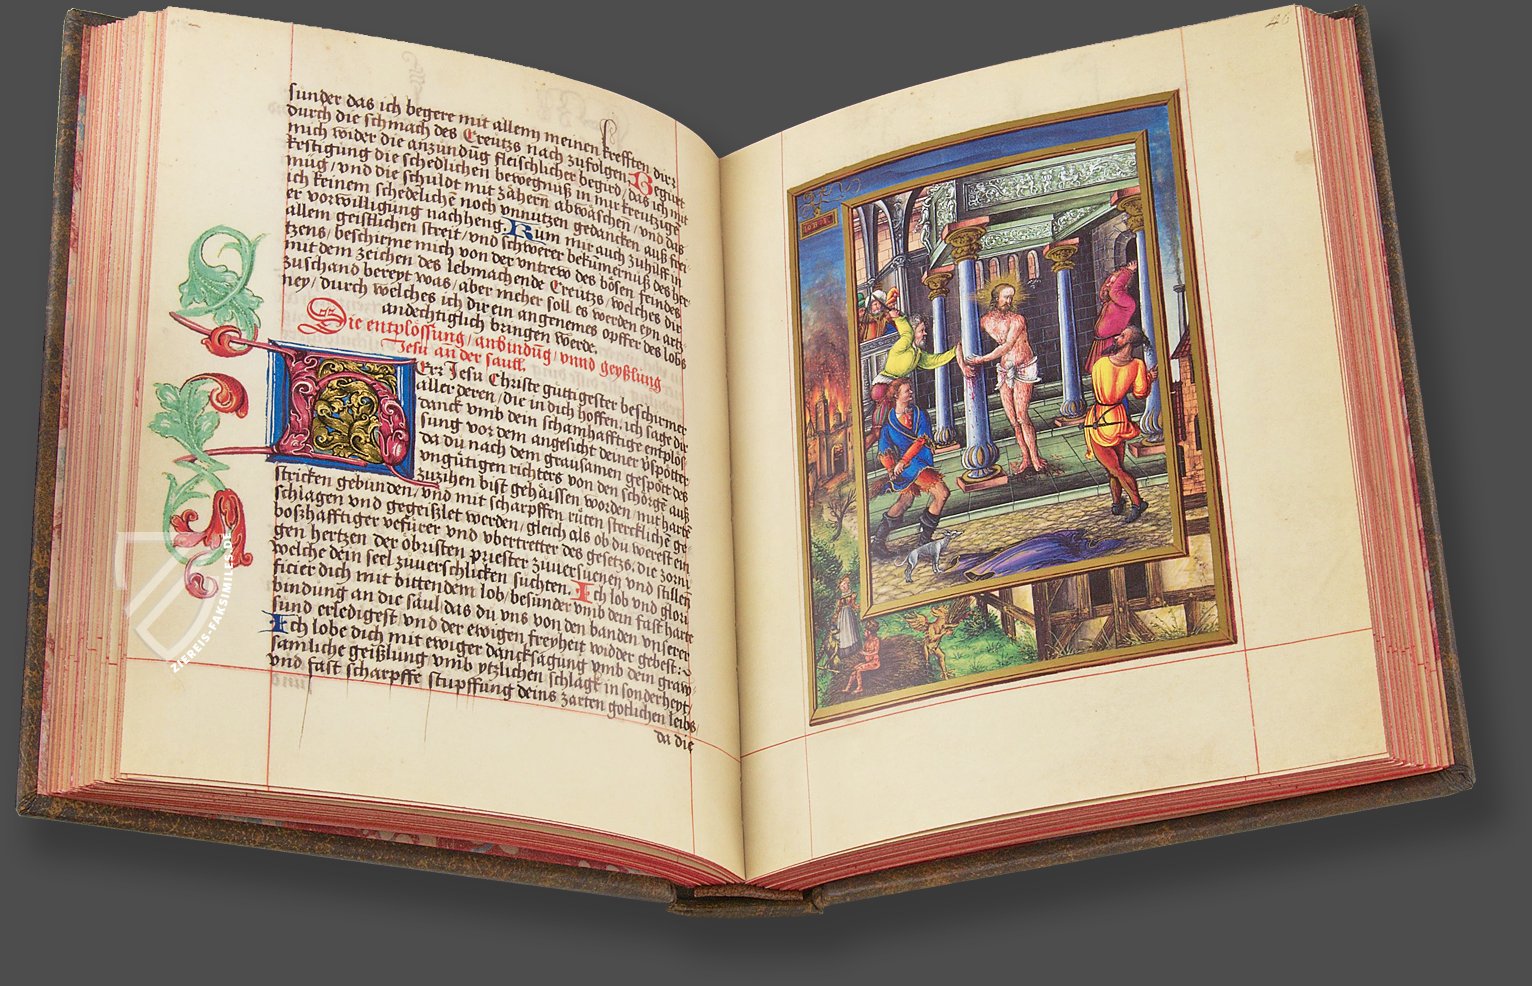 sunder das ich begere mit allem meinen krefften dir
durch die schmach des Creutzs nach zufolgen. Begurt
mich wider die anzündūg fleischlicher begird / das ich mit
kestigung die schedlichen bewegnuß in mir kreutzige
mug / und die schuldt mit zähern abwäschen / und das
ich keinem schedelichē noch vnnutzen gedancken auß
er vorwilligung nachheng. Kum mir auch zuhilff in
allem geistlichen streit / und schwerer bekümernuß des her
tzens / beschirme mich von der vntrew des bösen feindes
mit dem zeichen des lebmachende Creutzs / welches dir
zuschand bereyt was / aber meher soll es werden eyn artz
ney / durch welches ich dir ein angenemes opffer des lobs
andechtiglich bringen werde.
Die entplössung / anbindūg / vnnd geyßlung
Jesu an der saul.
Herr Jesu Christe gůttigester beschirmer
aller deren / die in dich hoffen / ich sage dir
danck vmb dein schamhafftige entplös
sung vor dem angesicht deiner vspötter
da du nach dem grausamen gespött des
vngůtigen richters von den schörgē auß
zuzihen bist gehaissen worden / mit harte
stricken gebunden / und mit scharpffen růten stercklichē ge
schlagen und gegeißlet werden / gleich als ob du werest ein
boßhafftiger vefürer und vbertretter des gesetzs. die zorni
gen hertzen der obristen priester zuuersuenen vnd stillen
welche dein seel zuuerschlicken suchten. Ich lob vnd glori
ficier dich mit bittendem lob / besunder vmb dein fast harte
bindung an die saul / das du vns von den banden vnserer
sund erledigest / vnd der ewigen freyheit widder gebest.
Ich lobe dich mit ewiger dancksagung vmb dem graw
samliche geißlung / vmb ytzlichen schlagk in sonderheyt /
vnd fast scharpffe stupffung deins zarten gotlichen leibs /
da die
46
ZIEREIS-FAKSIMILES.DE